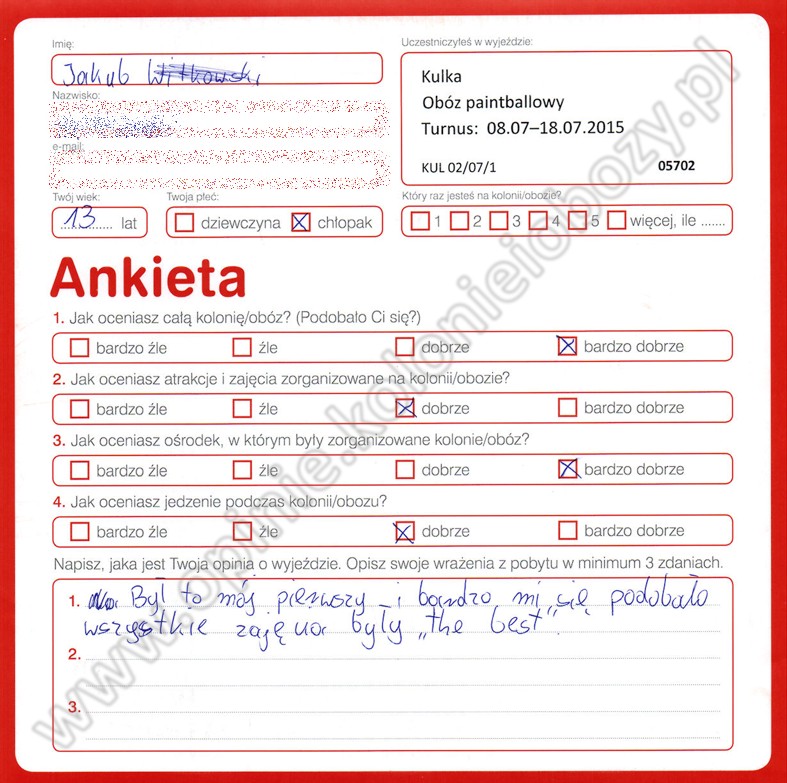 Imię:
Jakub
Nazwisko:
e-mail:
Twój wiek:
13 lat
Twoja płeć:
dziewczyna chłopak
Uczestniczyłeś w wyjeździe:
Kulka
Obóz paintballowy
Turnus: 08.07–18.07.2015
KUL 02/07/1 05702
Który raz jesteś na kolonii/obozie?
1 2 3 4 5 więcej, ile .......
Ankieta
1. Jak oceniasz całą kolonię/obóz? (Podobało Ci się?)
bardzo źle źle dobrze bardzo dobrze
2. Jak oceniasz atrakcje i zajęcia zorganizowane na kolonii/obozie?
bardzo źle źle dobrze bardzo dobrze
3. Jak oceniasz ośrodek, w którym były zorganizowane kolonie/obóz?
bardzo źle źle dobrze bardzo dobrze
4. Jak oceniasz jedzenie podczas kolonii/obozu?
bardzo źle źle dobrze bardzo dobrze
Napisz, jaka jest Twoja opinia o wyjeździe. Opisz swoje wrażenia z pobytu w minimum 3 zdaniach.
1. Był to mój pierwszy i bardzo mi się podobało
wszystkie zajęcia były „the best".
2.
3.
www.opinie.kolonieiobozy.pl